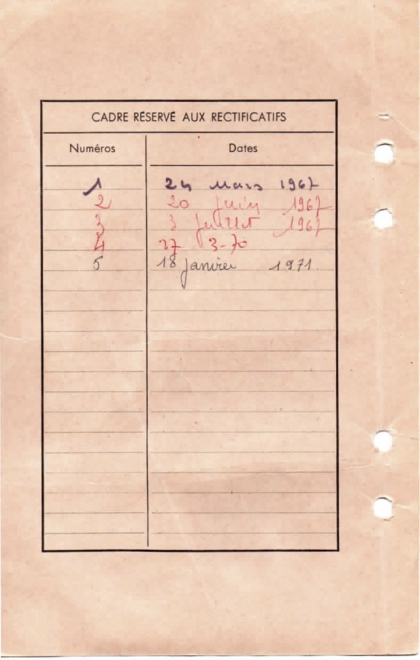 CADRE RÉSERVÉ AUX RECTIFICATIFS
Numéros Dates
1 24 Mars 1967
2 20 Juin 1967
3 3 Juillet 1967
4 27 3-70
5 18 janvier 1971